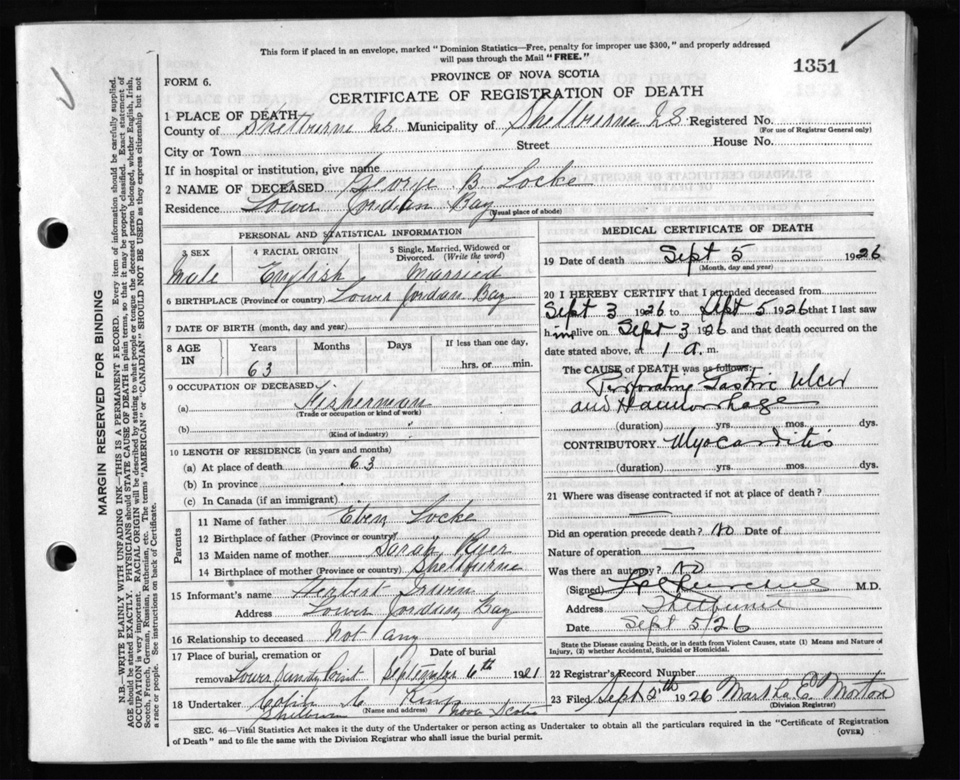 This form if placed in an envelope, marked "Dominion Statistics—Free, penalty for improper use $300," and properly addressed
will pass through the Mail "FREE."
1351
FORM 6.
PROVINCE OF NOVA SCOTIA
CERTIFICATE OF REGISTRATION OF DEATH
1 PLACE OF DEATH
County of Shelburne N.S. Municipality of Shelburne N.S. Registered No.
(For use of Registrar General only)
City or Town Street House No.
If in hospital or institution, give name
2 NAME OF DECEASED George B. Locke
Residence Lower Jordan Bay
(Usual place of abode)
PERSONAL AND STATISTICAL INFORMATION
3 SEX Male
4 RACIAL ORIGIN English
5 Single, Married, Widowed or
Divorced. (Write the word)
Married
6 BIRTHPLACE (Province or country) Lower Jordan Bay
7 DATE OF BIRTH (month, day and year)
8 AGE IN Years Months Days If less than one day,
63 hrs. or min.
9 OCCUPATION OF DECEASED
(a) Fisherman
(Trade or occupation or kind of work)
(b)
(Kind of industry)
10 LENGTH OF RESIDENCE (in years and months)
(a) At place of death 63
(b) In province
(c) In Canada (if an immigrant)
Parents
11 Name of father Eben Locke
12 Birthplace of father (Province or country)
13 Maiden name of mother Sarah
14 Birthplace of mother (Province or country) Shelburne
15 Informant's name Herbert Irwin
Address Lower Jordan Bay
16 Relationship to deceased Not any
17 Place of burial, cremation or
removal Lower Sandy Point
Date of burial
September 6th 1921
18 Undertaker Colin King
(Name and address)
Shelburne Nova Scotia
MEDICAL CERTIFICATE OF DEATH
19 Date of death Sept 5 1926
(Month, day and year)
20 I HEREBY CERTIFY that I attended deceased from
Sept 3 1926 to Sept 5 1926 that I last saw
him alive on Sept 3 1926 and that death occurred on the
date stated above, at 1 a. m.
The CAUSE of DEATH was as follows:
Perforating Gastric Ulcer
and Haemorrhage
(duration) yrs. mos. dys.
CONTRIBUTORY Myocarditis
(duration) yrs. mos. dys.
21 Where was disease contracted if not at place of death?
Did an operation precede death? No Date of
Nature of operation
Was there an autopsy? No
(Signed) Churchill M.D.
Address Shelburne
Date Sept 5/26
State the Disease causing Death, or in death from Violent Causes, state (1) Means and Nature of
Injury, (2) whether Accidental, Suicidal or Homicidal.
22 Registrar's Record Number
23 Filed Sept 1926 Martha E. Morton
(Division Registrar)
SEC. 46—Vital Statistics Act makes it the duty of the Undertaker or person acting as Undertaker to obtain all the particulars required in the "Certificate of Registration
of Death" and to file the same with the Division Registrar who shall issue the burial permit.
(OVER)
MARGIN RESERVED FOR BINDING
N.B.—WRITE PLAINLY WITH UNFADING INK—THIS IS A PERMANENT RECORD. Every item of information should be carefully supplied.
AGE should be stated EXACTLY. PHYSICIANS should STATE CAUSE OF DEATH in plain terms, so that it may be properly classified. Exact statement of
OCCUPATION is very important. RACIAL ORIGIN will be described by stating to what people or tongue the deceased person belonged, whether English, Irish,
Scotch, French, German, Russian, Ruthenian, etc. The terms "AMERICAN" or "CANADIAN" SHOULD NOT BE USED as they express citizenship but not
a race or people. See instructions on back of Certificate.